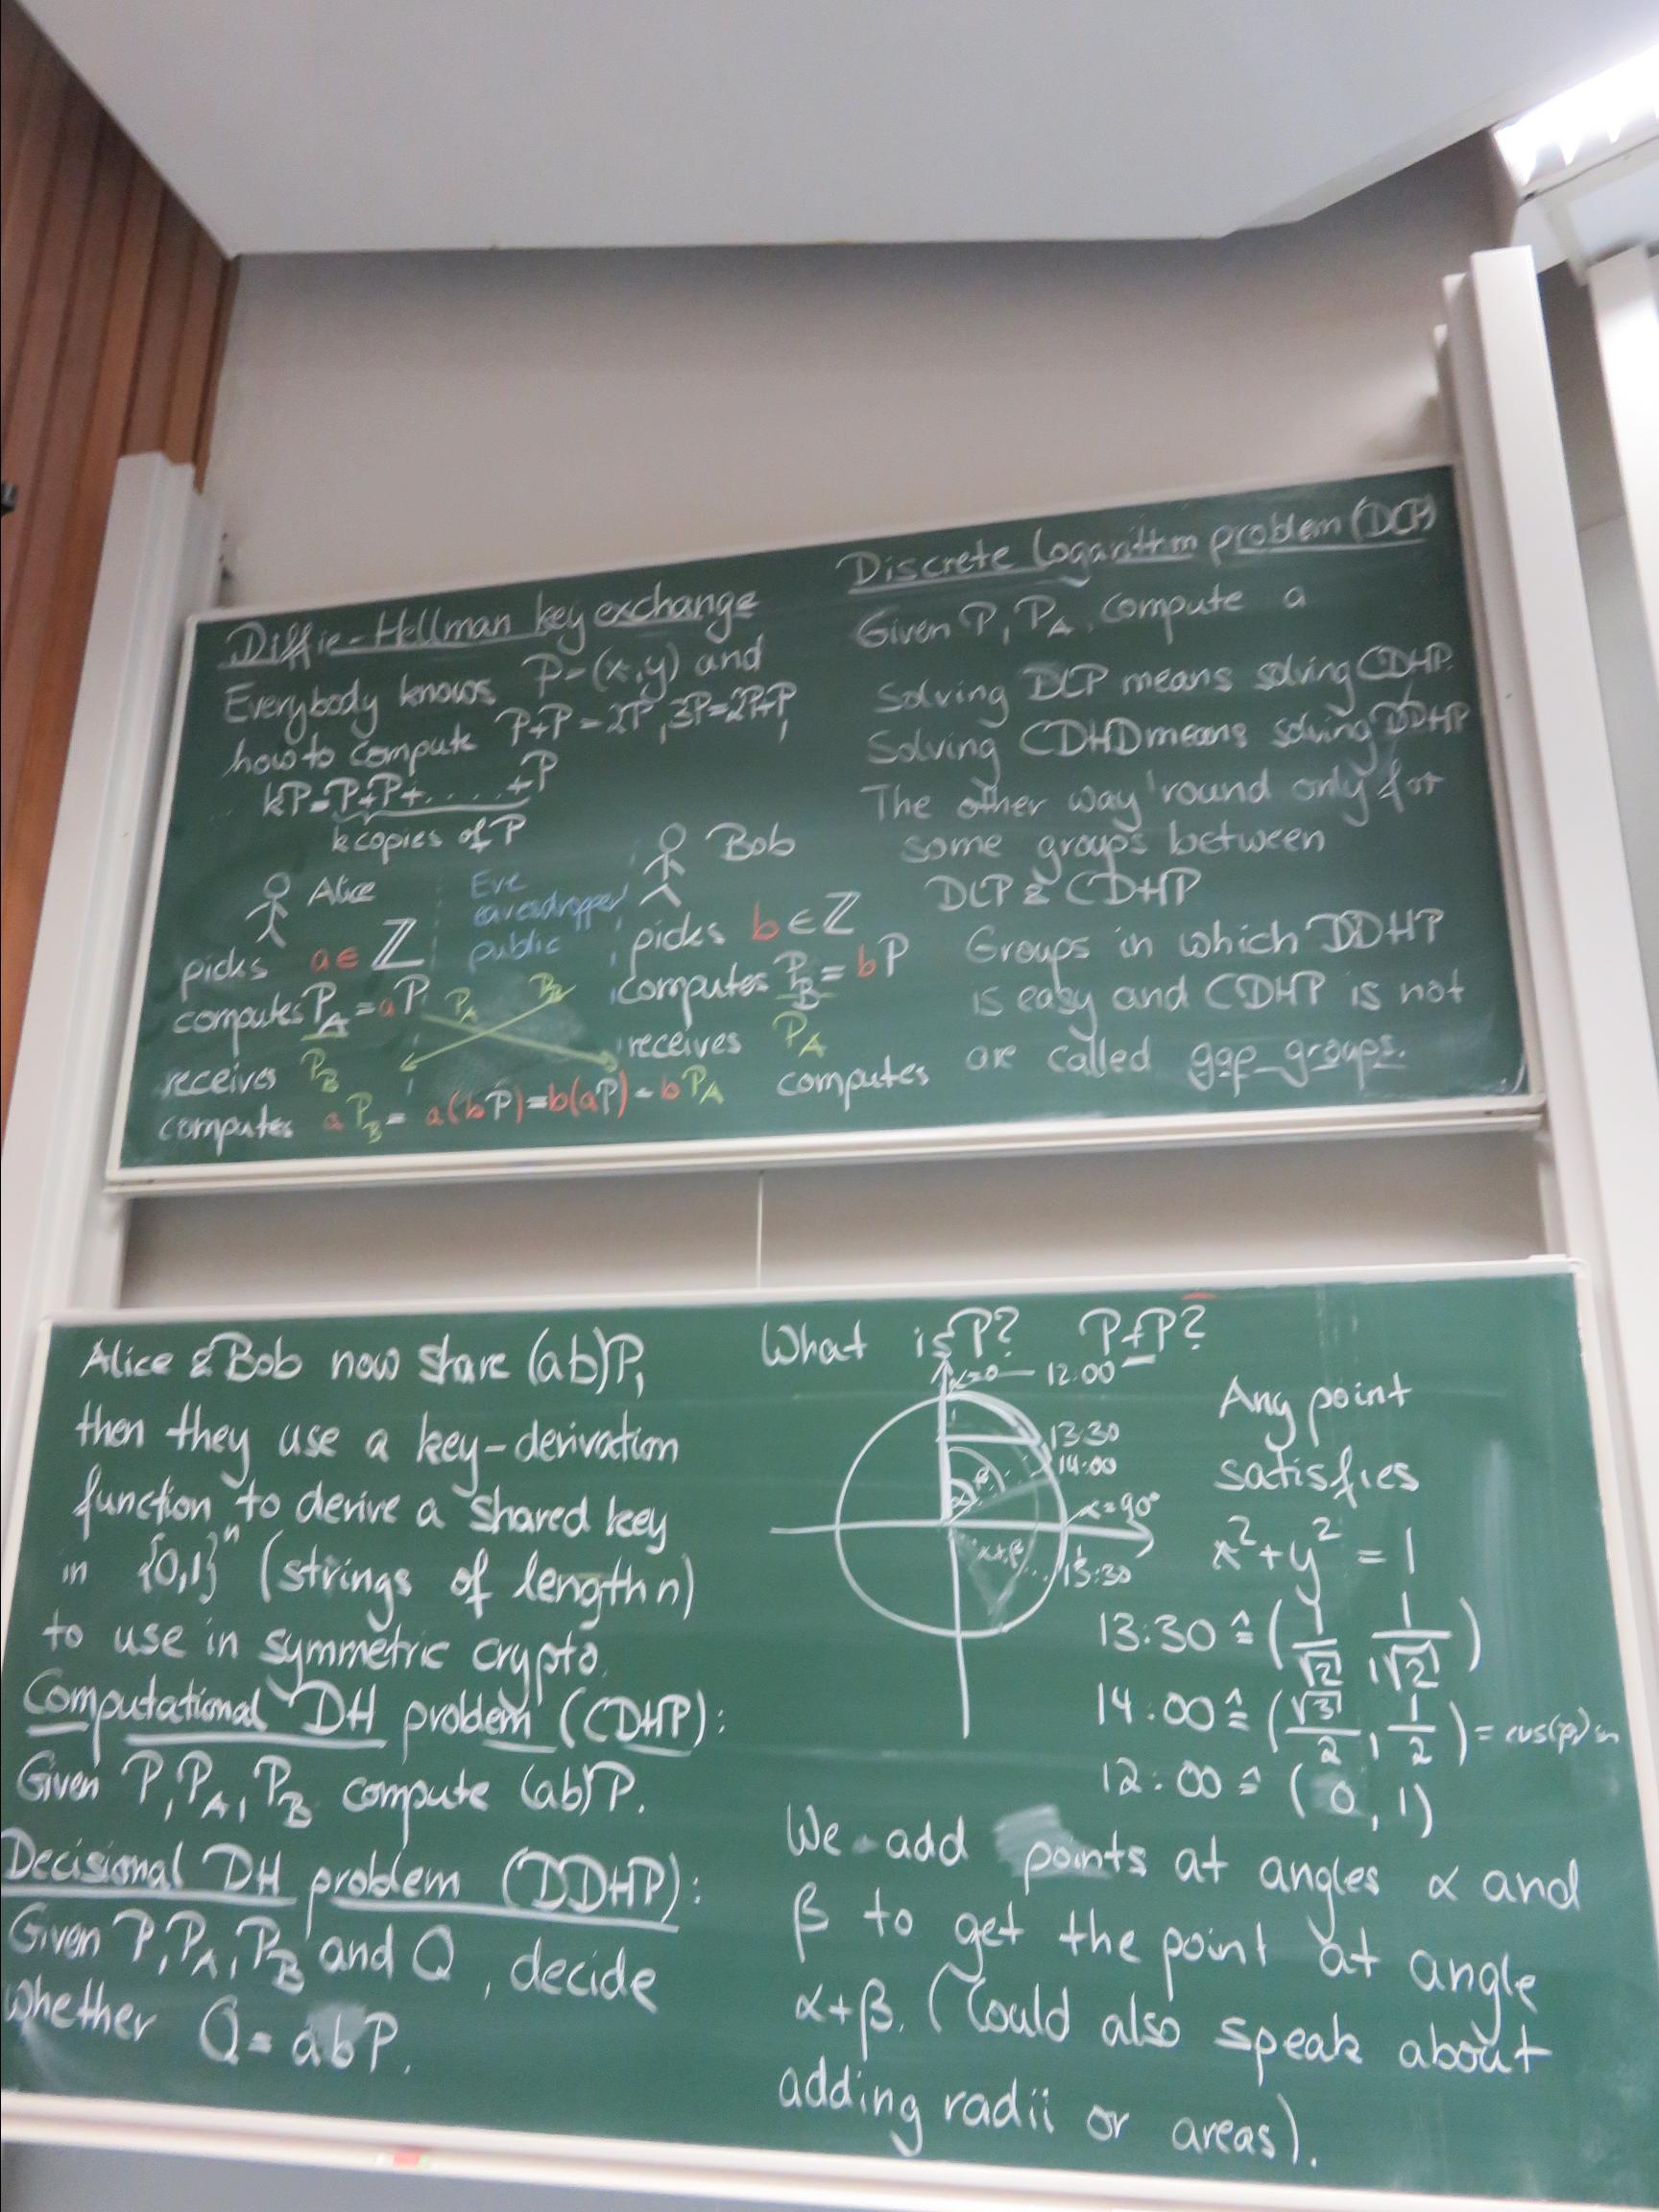 Diffie-Hellman key exchange
Everybody knows P=(x,y) and
how to compute P+P=2P, 3P=2P+P,
kP=P+P+.....+P
k copies of P
Alice
Eve
eavesdropper
public
Bob
picks a∈ℤ
picks b∈ℤ
computes P_A = aP
P_A
P_B
computes P_B = bP
receives P_B
receives P_A
computes aP_B = a(bP)=b(aP) = bP_A computes
Discrete logarithm problem (DLP)
Given P, P_A, compute a
Solving DLP means solving CDHP.
Solving CDHD means solving DDHP
The other way 'round only for
some groups between
DLP & CDHP
Groups in which DDHP
is easy and CDHP is not
are called gap-groups.
Alice & Bob now share (ab)P,
then they use a key-derivation
function to derive a shared key
in {0,1}^n (strings of length n)
to use in symmetric crypto.
Computational DH problem (CDHP):
Given P, P_A, P_B compute (ab)P.
Decisional DH problem (DDHP):
Given P, P_A, P_B and Q, decide
whether Q = abP.
What is P? P+P?
α=0 — 12:00
13:30
14:00
β
α
α=90°
α+β
15:30
Any point
satisfies
x²+y² = 1
13:30 ≙ (1/√2, 1/√2)
14:00 ≙ (√3/2, 1/2) = cos(β)
12:00 ≙ (0, 1)
We add points at angles α and
β to get the point at angle
α+β. (Could also speak about
adding radii or areas).